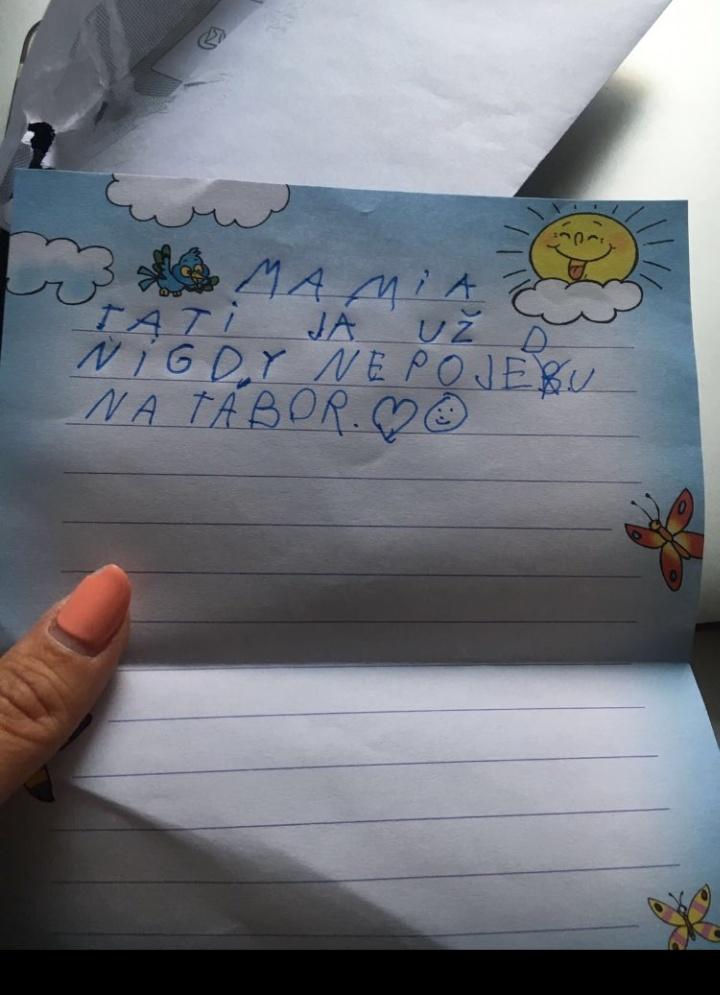 MAMI A
TATI JA UŽ
NIGDY NEPOJEDU
NA TÁBOR.